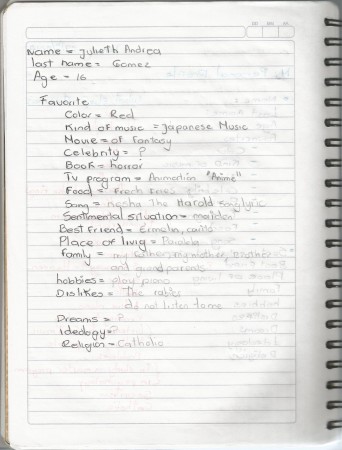 Name = Julieth Andrea
last name = Gomez
Age = 16
Favorite
Color = Red
Kind of music = Japanese Music
Movie = of Fantasy
Celebrity = ?
Book = horror
Tv program = Animation "Anime"
Food = French Fries
Song = Kesha The Harold song lyric
Sentimental situation = maiden
Best Friend = Ermelin, camilo
Place of livig =
Family = my father, my mother, brother
and grand parents
hobbies = play piano
Dislikes = The rabies
did not listen to me
Dreams = ?
Ideology = ?
Religion = Catholic